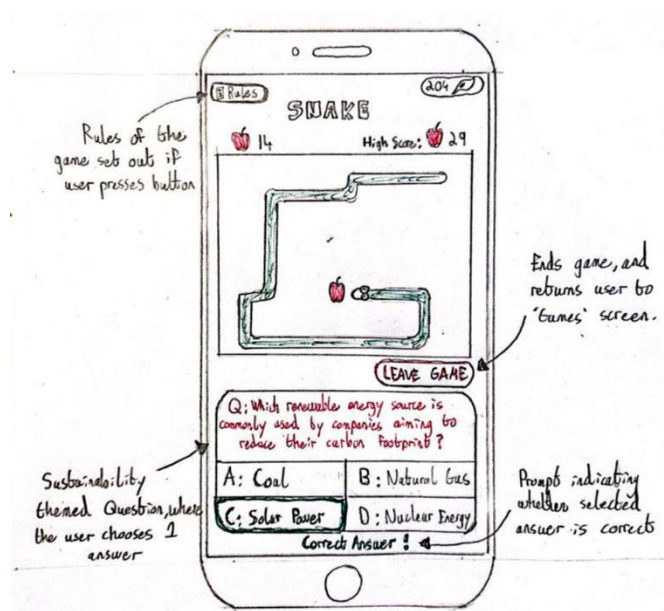 Rules
204
SNAKE
14
High Score: 29
Rules of the
game set out if
user presses button
Ends game, and
returns user to
'Games' screen.
LEAVE GAME
Q: Which renewable energy source is
commonly used by companies aiming to
reduce their carbon footprint?
A: Coal
B: Natural Gas
C: Solar Power
D: Nuclear Energy
Correct Answer!
Sustainability
themed Question, where
the user chooses 1
answer
Prompt indicating
whether selected
answer is correct